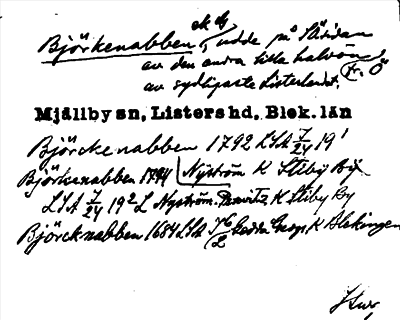 Björkenabben, udde på S sidan
av den andra lilla halvön
av sydligaste Listerlandet. Ö
Mjällby sn, Listers hd, Blek. län
Björckenabben 1792 LSA 7/24 19¹
Björkenabben 1794 Nyström K Stiby By
LSA 7/24 19² L Nyström K Stiby by
Björcknabben 1684 LSA 46/2 Gedda Geogr K Blekingen